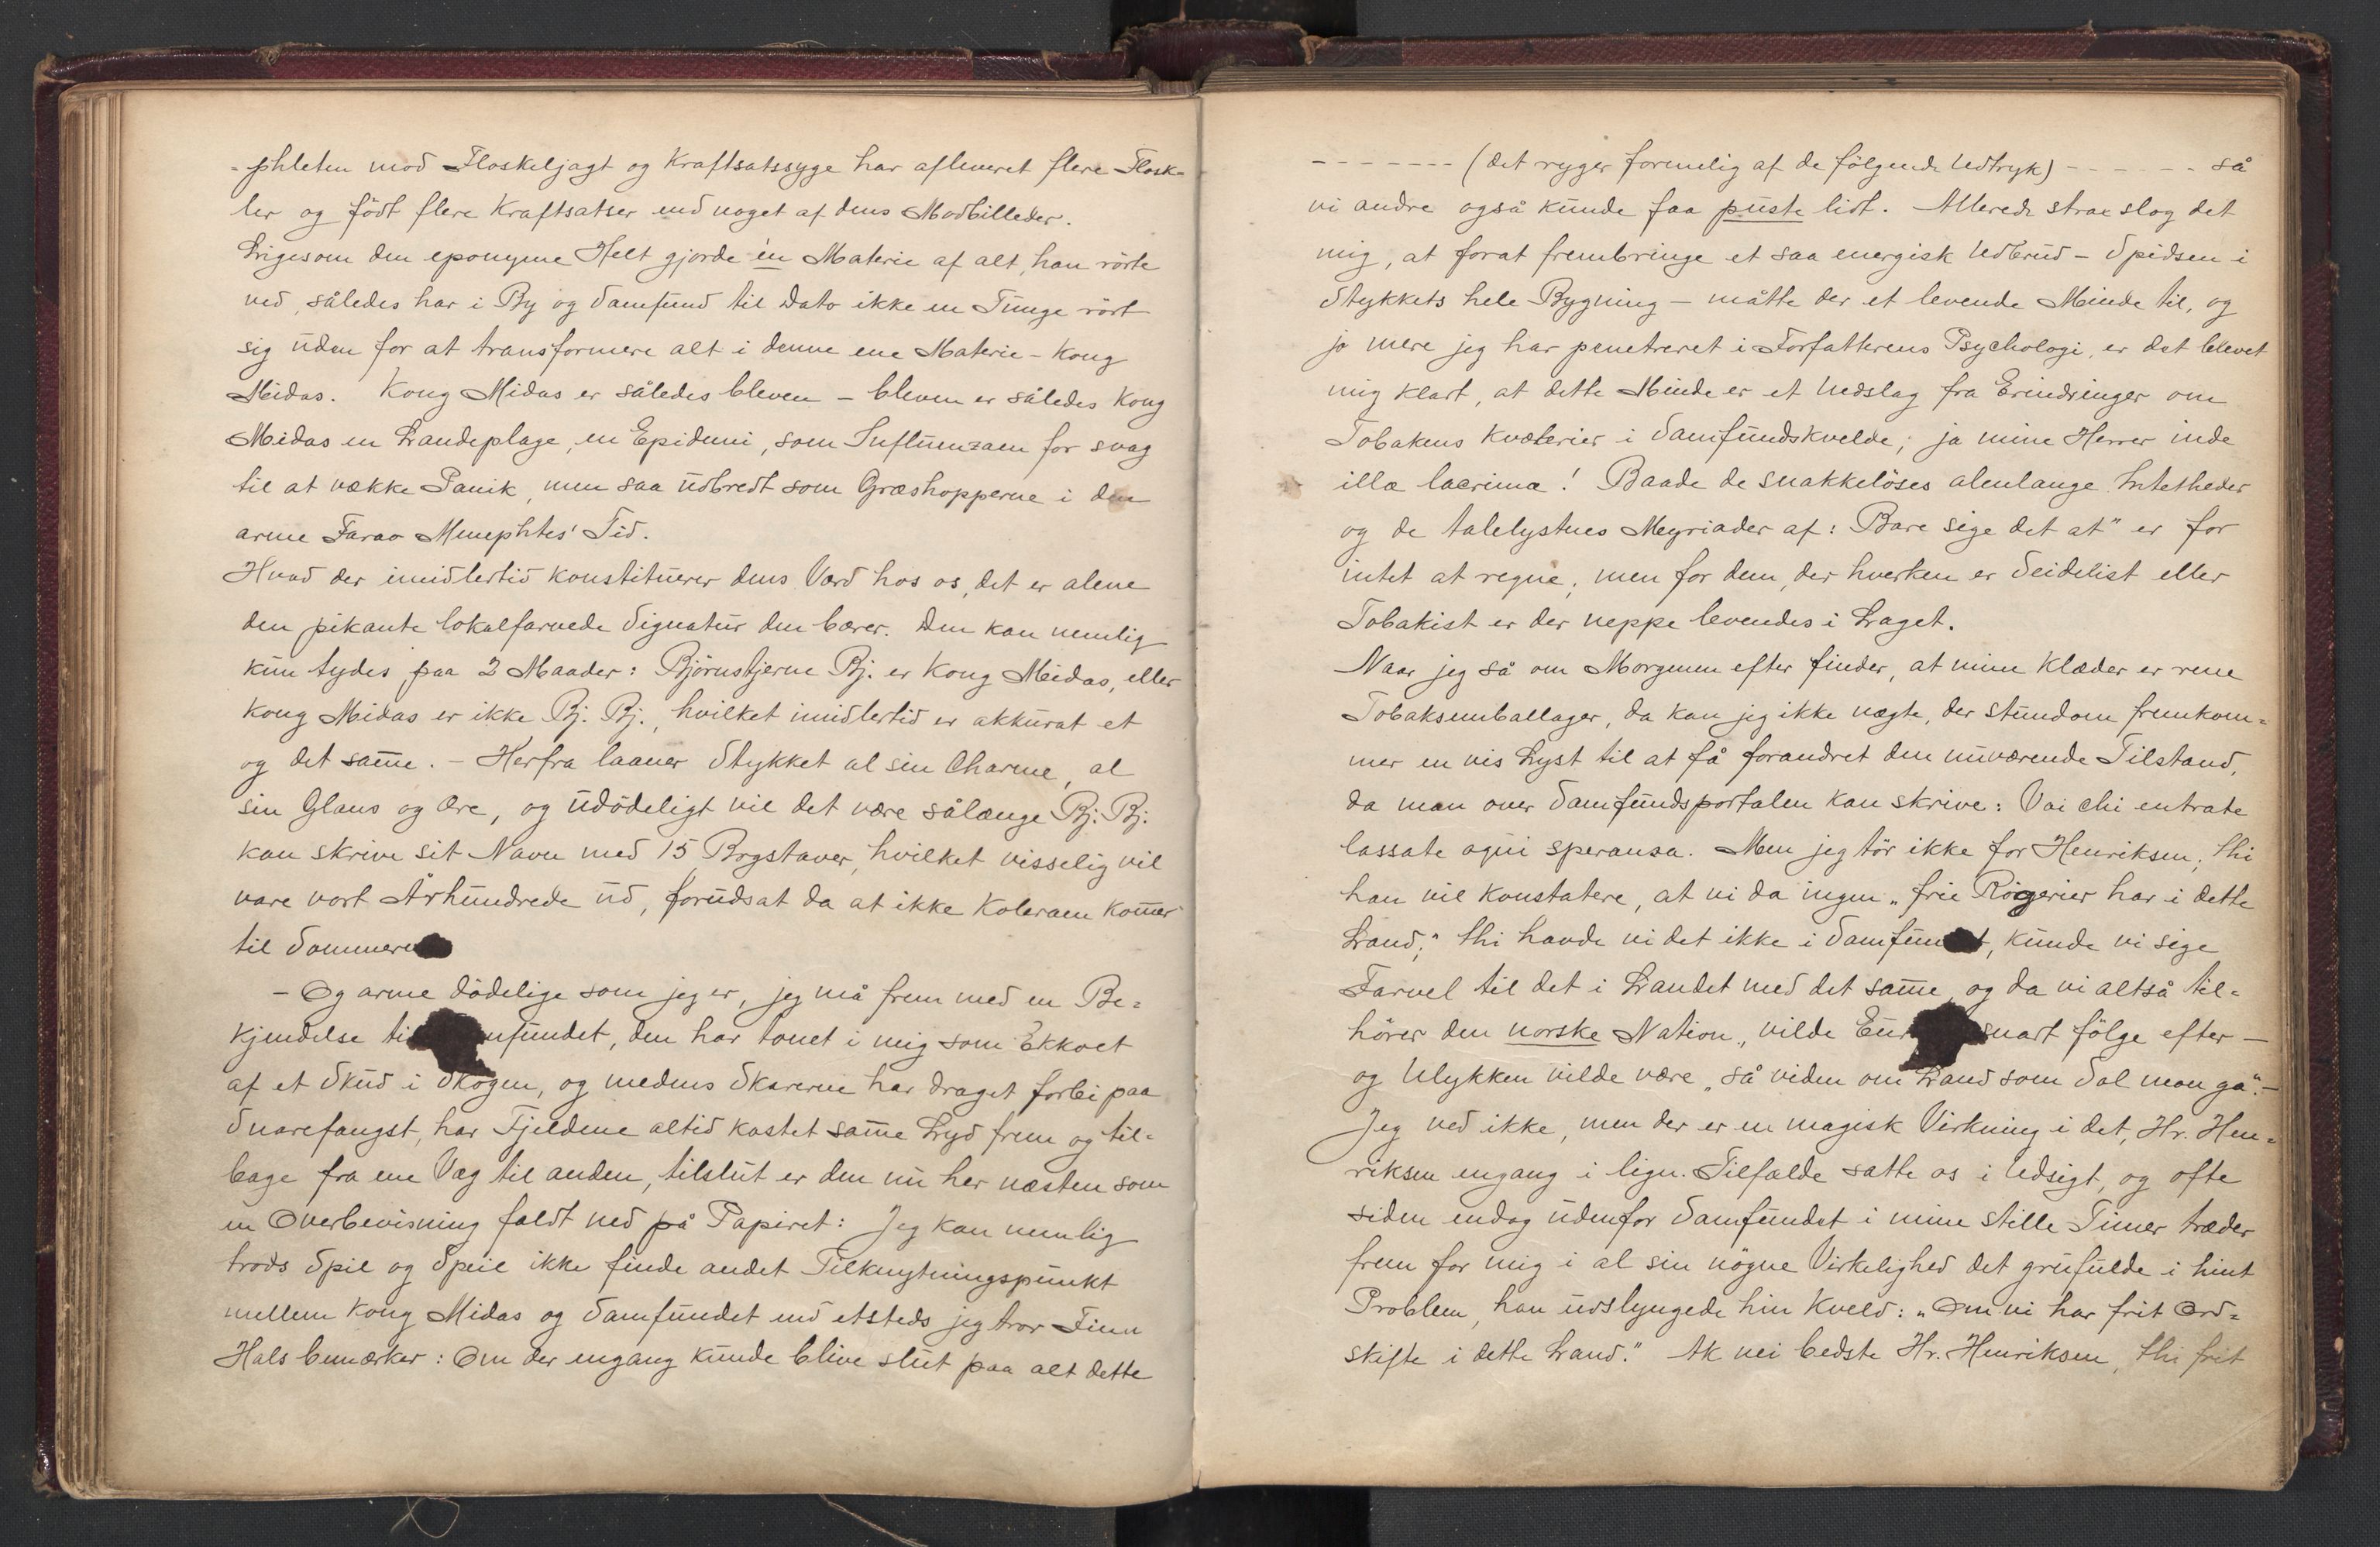 -phleten mod Floskeljagt og Kraftsatssyge har afleveret flere Flosk-
ler og födt flere Kraftsatser end noget af dens Modbilleder.
Ligesom den eponyme Helt gjorde én Materie af alt, han rörte
ved, således har i By og Samfund til Dato ikke en Tunge rört
sig uden for at transformere alt i denne ene Materie - Kong
Midas. Kong Midas er således bleven - bleven er således Kong
Midas en Landeplage, en Epidemi, som Influenzaen for svag
til at vække Panik, men saa udbredt som Græshopperne i den
arme Farao Menephtes' Tid.
Hvad der imidlertid konstituerer dens Værd hos os, det er alene
den pikante lokalfarvede Signatur den bærer. Den kan nemlig
kun tydes paa 2 Maader: Björnstjerne Bj. er Kong Midas, eller
Kong Midas er ikke Bj. Bj., hvilket imidlertid er akkurat et
og det samme. - Herfra laaner Stykket al sin Charme, al
sin Glans og Ære, og udödeligt vil det være sålænge Bj. Bj.
kan skrive sit Navn med 15 Bogstaver, hvilket visselig vil
vare vort Århundrede ud, forudsat da at ikke Koleraen kommer
til Sommeren
- Og arme dödelige som jeg er, jeg må frem med en Be-
kjendelse til nfundet, den har tonet i mig som Ekkoet
af et Skud i Skogen, og medens Skarerne har draget forbi paa
Snarefangst, har Fjeldene altid kastet samme Lyd frem og til-
bage fra ene Væg til anden, tilslut er den nu her næsten som
en Overbevisning faldt ned på Papiret: Jeg kan nemlig
trods Spil og Speil ikke finde andet Tilknytningspunkt
mellem Kong Midas og Samfundet end etsteds jeg tror Finn
Hals bemærker: Om der engang kunde blive slut paa alt dette
- - - - - - - (det ryger formelig af de fölgende Udtryk) - - - - - - så
vi andre også kunde faa puste lidt. Allerede strax slog det
mig, at forat frembringe et saa energisk Udbrud - Spidsen i
Stykkets hele Bygning - måtte der et levende Minde til, og
jo mere jeg har penetreret i Forfatterens Psychologi, er det blevet
mig klart, at dette Minde er et Nedslag fra Erindringer om
Tobakens Kvælerier i Samfundskvelde; ja mine Herrer inde
illa lacrima! Baade de snakkelöses alenlange Intetheder
og de talelystnes Myriader af: Bare sige det at" er for
intet at regne; men for dem, der hverken er Seidelist eller
Tobakist er der neppe levendes i Laget.
Naar jeg så om Morgenen efter finder, at mine Klæder er rene
Tobaksemballager, da kan jeg ikke nægte, der stundom fremkom-
mer en vis Lyst til at få forandret den nuværende Tilstand,
da man over Samfundsportalen kan skrive: Voi chi entrate
lassate ogni speransa. Men jeg tör ikke for Henriksen; thi
han vil konstatere, at vi da ingen „frie Rögerier har i dette
Land;" thi havde vi det ikke i Samfundet, kunde vi sige
Farvel til det i Landet med det samme, og da vi altså til-
hörer den norske Nation, vilde Eur snart fölge efter -
og Ulykken vilde være „så viden om Land som Sol mon gå". -
Jeg ved ikke, men der er en magisk Virkning i det, Hr. Hen-
riksen engang i lign. Tilfælde satte os i Udsigt, og ofte
siden endog udenfor Samfundet i mine stille Timer træder
frem for mig i al sin nögne Virkelighed det grufulde i hint
Problem, han udslyngede hin Kveld: „Om vi har frit Ord-
skifte i dette Land." Ak nei bedste Hr. Henriksen, thi frit